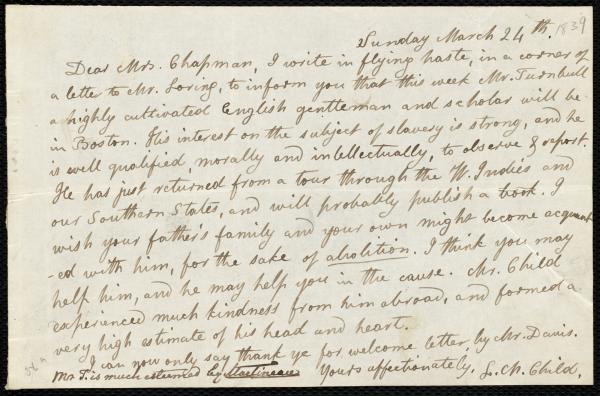 Sunday March 24th. 1839
Dear Mrs. Chapman, I write in flying haste, in a corner of
a letter to Mr. Loring, to inform you that this week Mr. Turnbull
a highly cultivated English gentleman and scholar will be
in Boston. His interest on the subject of slavery is strong, and he
is well qualified, morally and intellectually, to observe & report.
He has just returned from a tour through the W. Indies and
our Southern States, and will probably publish a book. I
wish your father's family and your own might become acquaint
-ed with him, for the sake of abolition. I think you may
help him, and he may help you in the cause. Mr. Child
experienced much kindness from him abroad, and formed a
very high estimate of his head and heart.
I can now only say thank ye for welcome letter, by Mr. Davis.
Mr T. is much esteemed by Martineau Yours affectionately, L. M. Child.